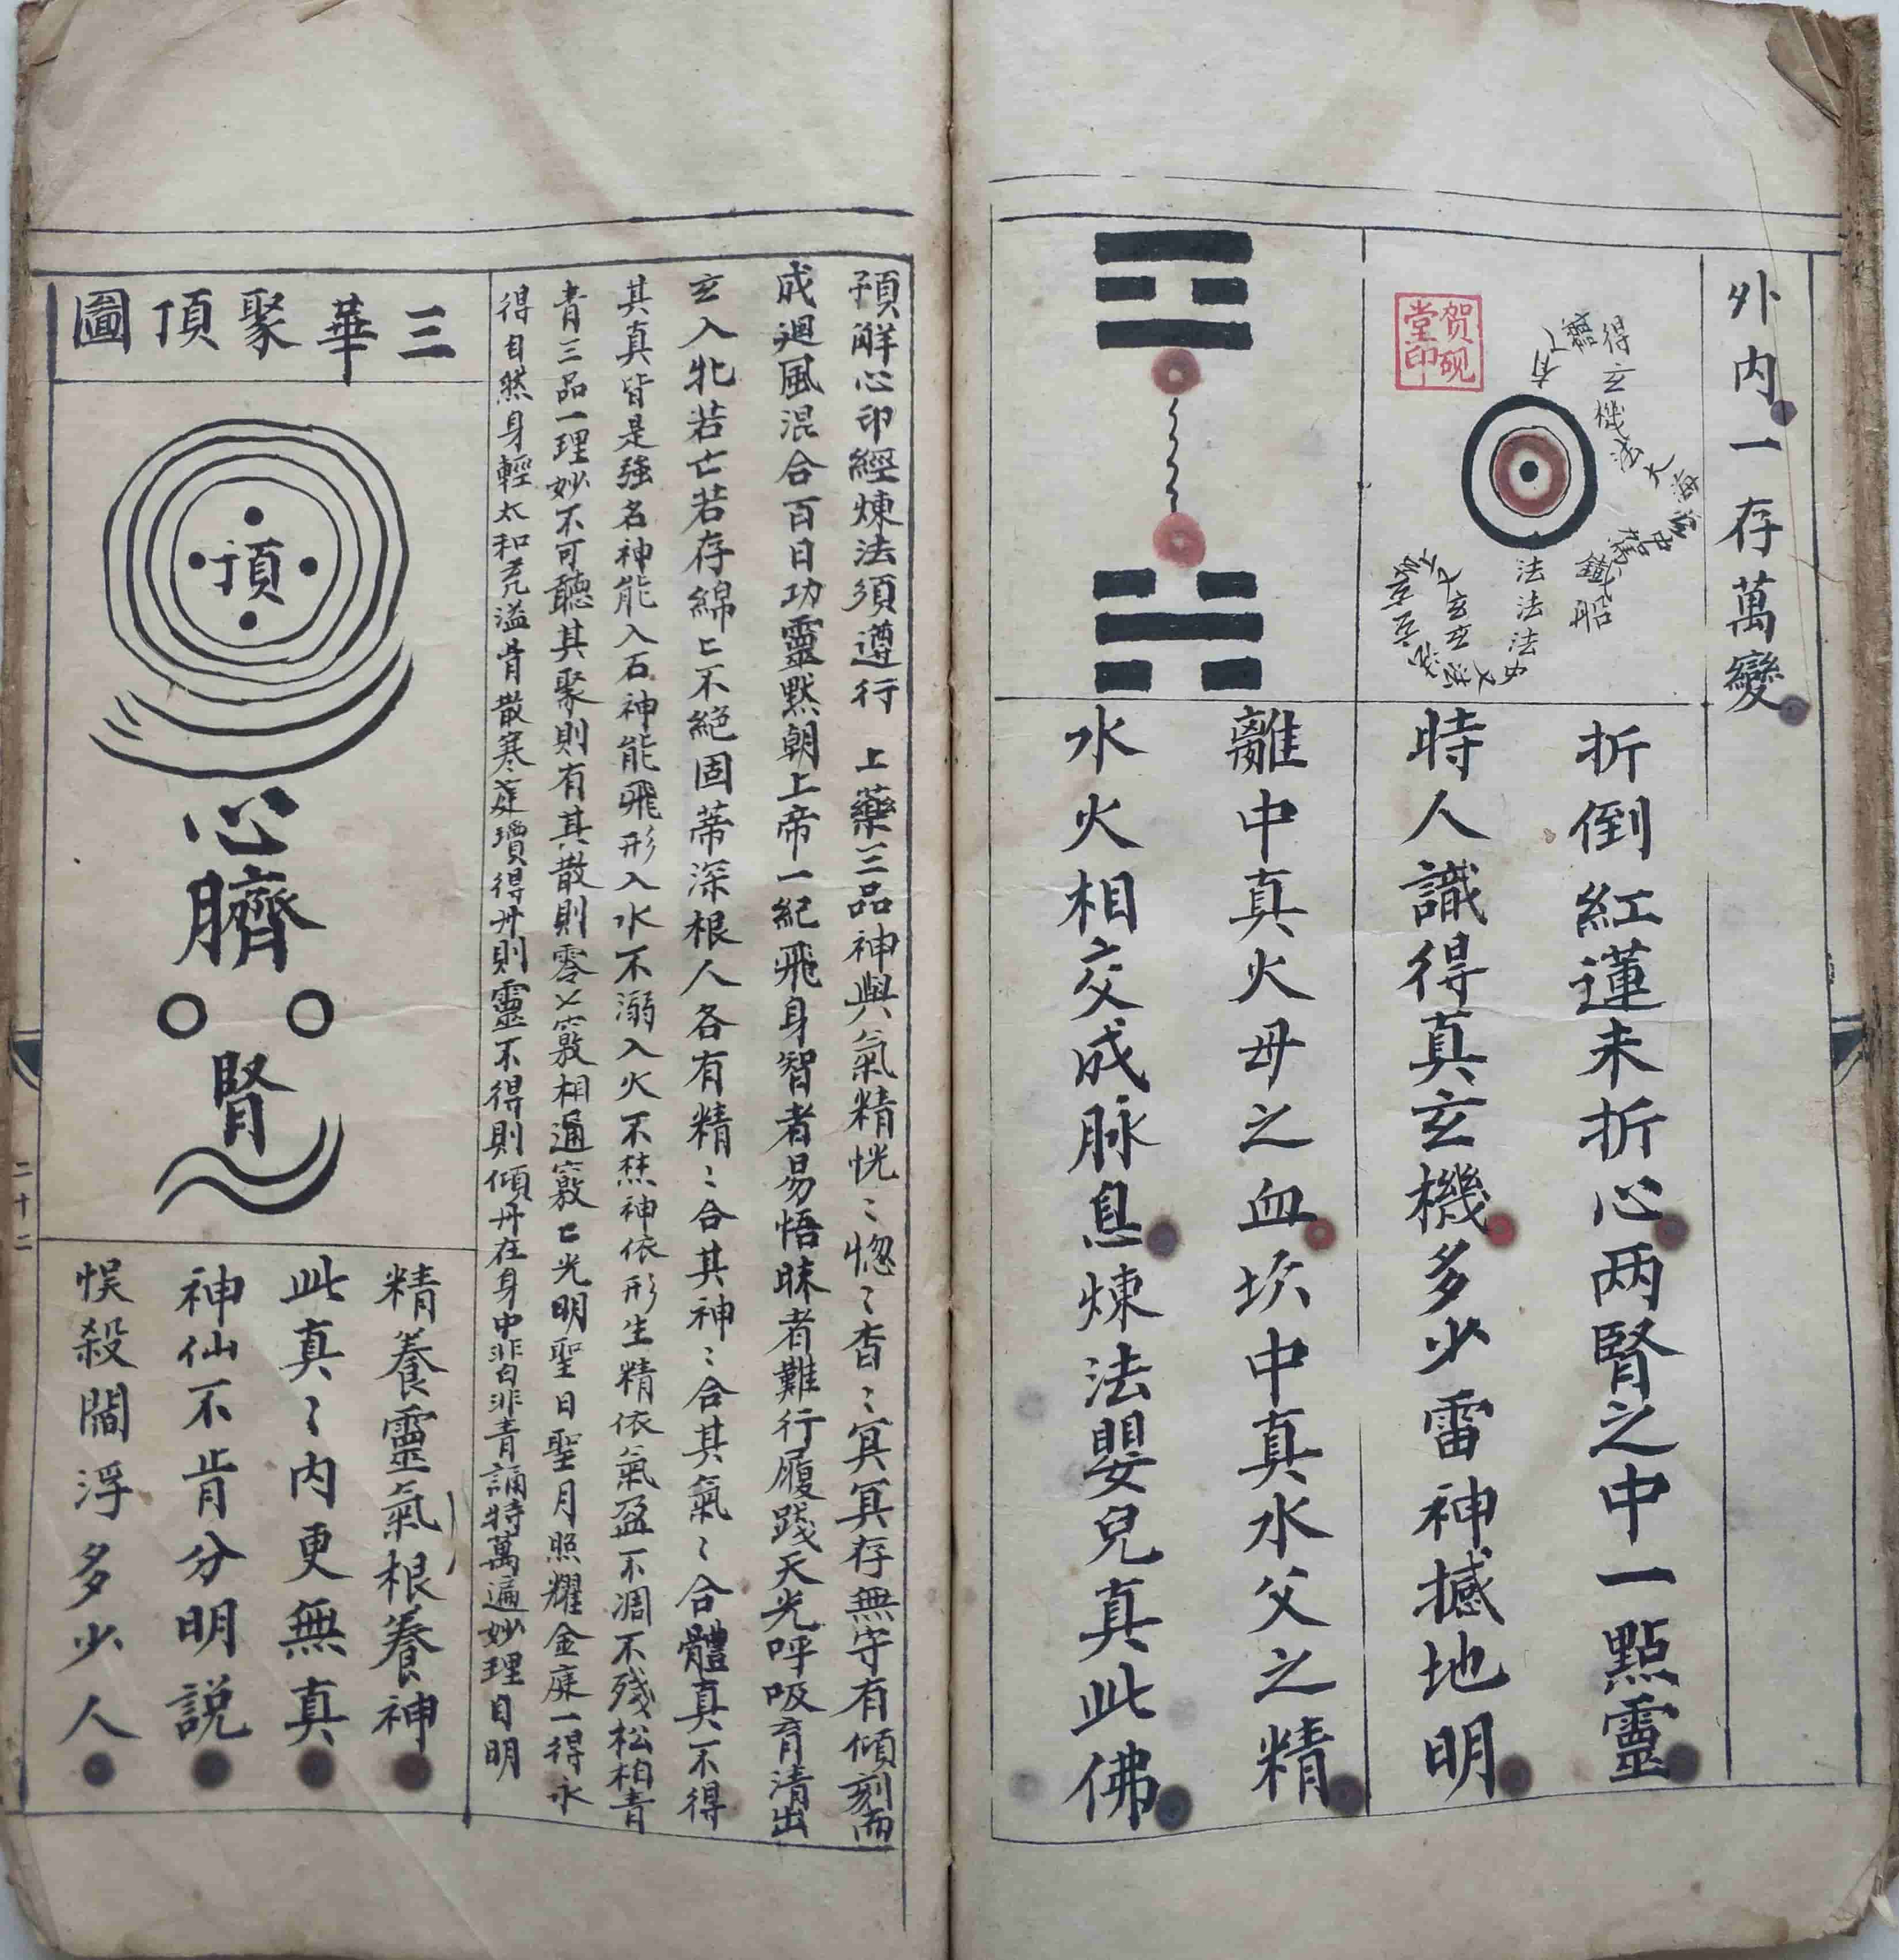 外内一存萬變
得玄機法
大海
鐵船
法法法
賀硯堂印
折倒紅蓮未折心两腎之中一點靈
時人識得真玄機多少雷神撼地明
離中真火母之血坎中真水父之精
水火相交成脉息煉法嬰兒真此佛
預解心印經煉法須遵行 上藥三品神與氣精恍〻惚〻杳〻冥冥存無守有傾刻而
成迴風混合百日功靈默朝上帝一紀飛身智者易悟昧者難行履踐天光呼吸育清出
玄入牝若亡若存綿匕不絕固蒂深根人各有精〻合其神〻合其氣〻合體真不得
其真皆是強名神能入石神能飛形入水不溺入火不焚神依形生精依氣盈不凋不殘松柏青
青三品一理妙不可聽其聚則有其散則零乂竅相通竅匕光明聖日聖月照耀金庭一得永
得自然身輕太和充溢骨散寒瓊得丹則靈不得則傾丹在身中非白非青誦持萬遍妙理自明
三華聚頂圖
頂
心
臍
腎
精養靈氣根養神
此真〻內更無真
神仙不肯分明說
悮殺閻浮多少人
二十二